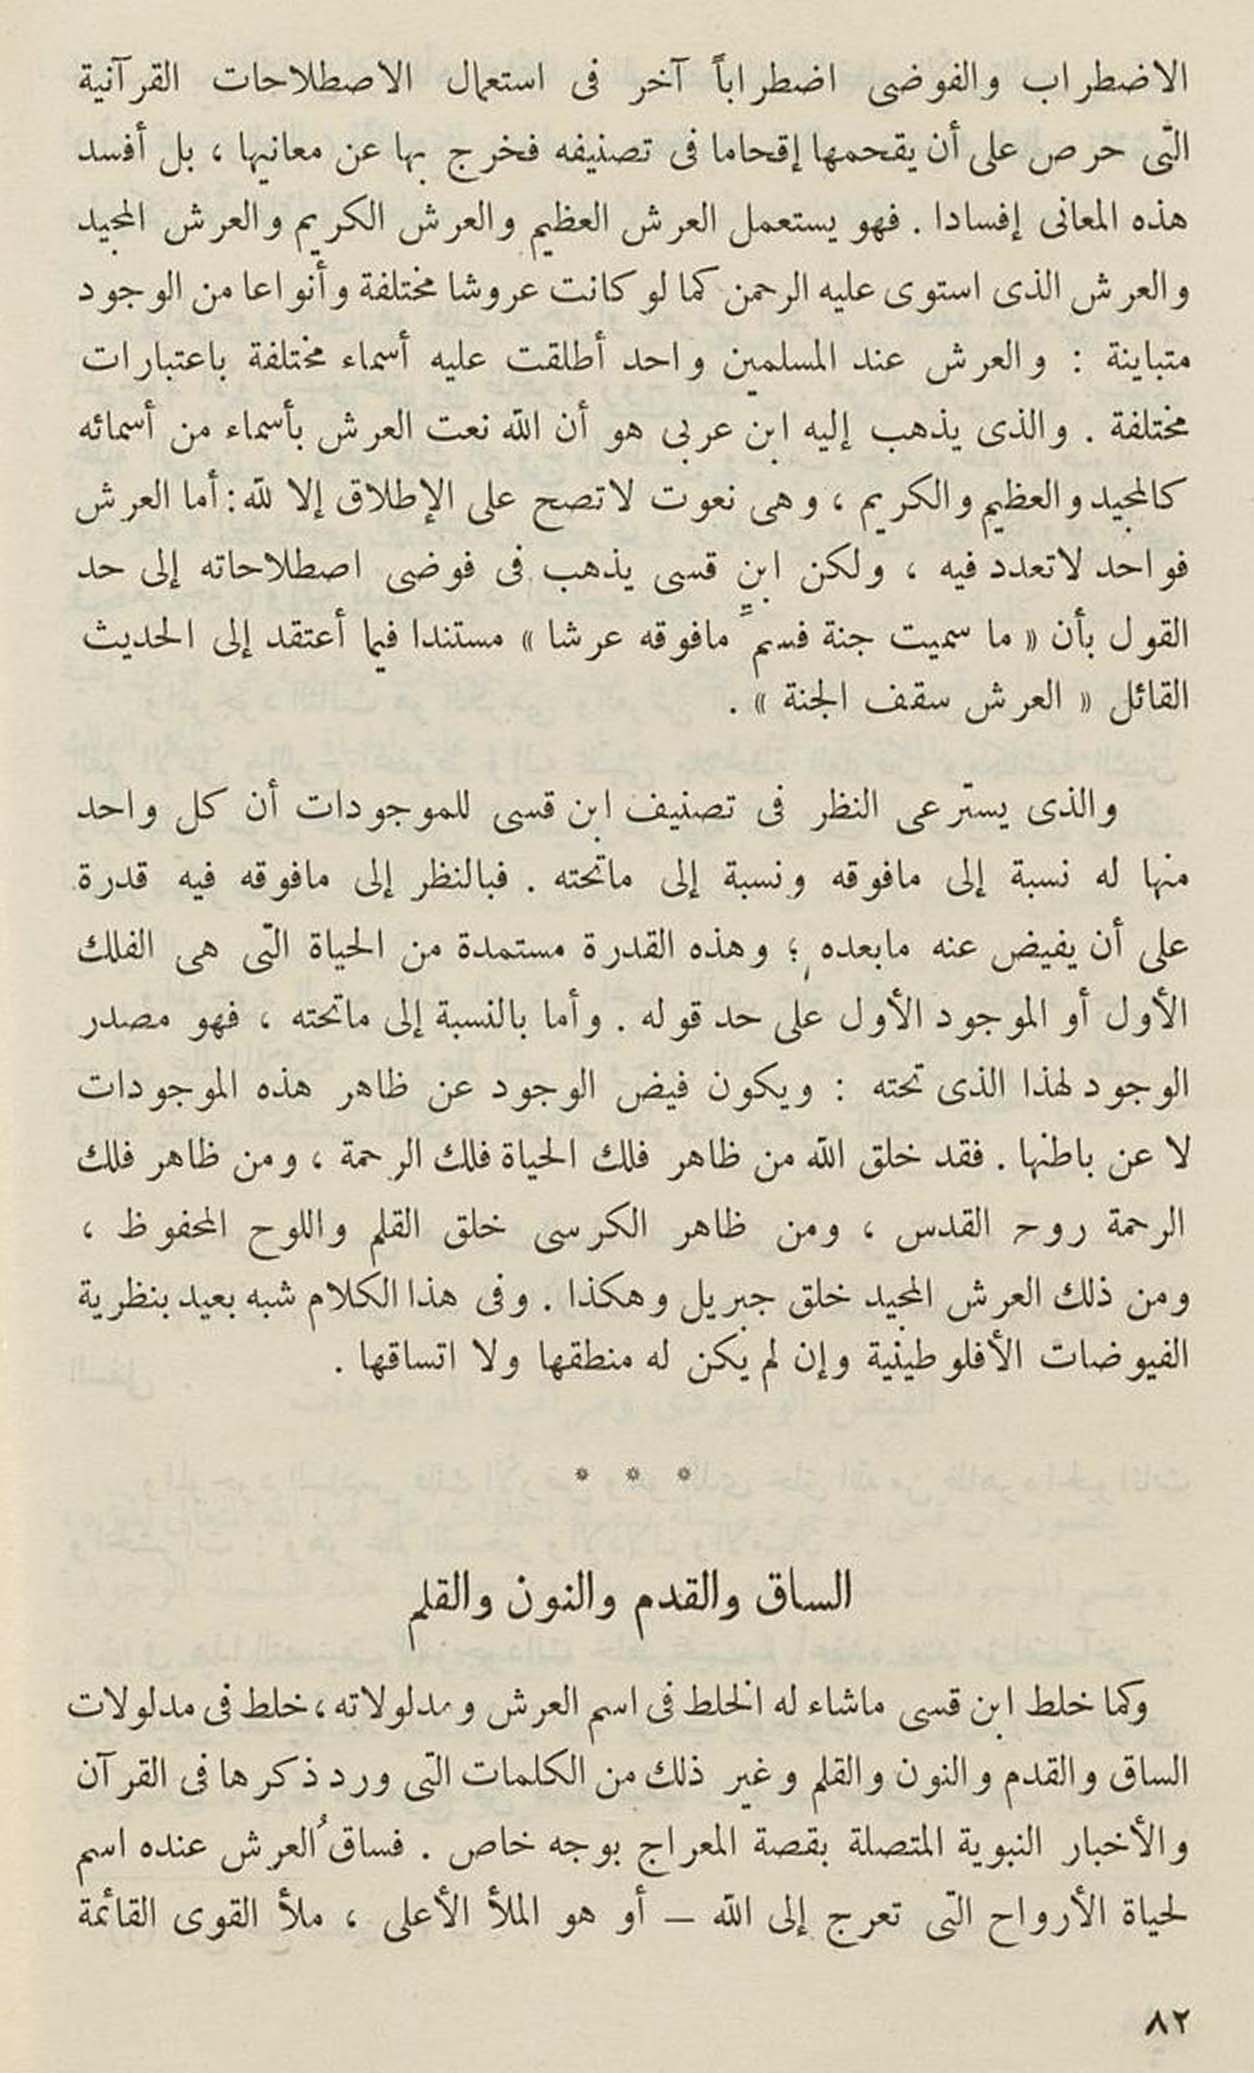 الاضطراب والفوضى اضطراباً آخر فى استعمال الاصطلاحات القرآنية
التى حرص على أن يقحمها إقحاما فى تصنيفه فخرج بها عن معانيها ، بل أفسد
هذه المعانى إفسادا . فهو يستعمل العرش العظيم والعرش الكريم والعرش المجيد
والعرش الذى استوى عليه الرحمن كما لو كانت عروشا مختلفة وأنواعا من الوجود
متباينة : والعرش عند المسلمين واحد أطلقت عليه أسماء مختلفة باعتبارات
مختلفة . والذى يذهب إليه ابن عربى هو أن الله نعت العرش بأسماء من أسمائه
كالمجيد والعظيم والكريم ، وهى نعوت لاتصح على الإطلاق إلا لله : أما العرش
فواحد لاتعدد فيه ، ولكن ابن قسى يذهب فى فوضى اصطلاحاته إلى حد
القول بأن « ما سميت جنة فسمِّ مافوقه عرشا » مستندا فيما أعتقد إلى الحديث
القائل « العرش سقف الجنة » .
والذى يسترعى النظر فى تصنيف ابن قسى للموجودات أن كل واحد
منها له نسبة إلى مافوقه ونسبة إلى ماتحته . فبالنظر إلى مافوقه فيه قدرة
على أن يفيض عنه مابعده ؛ وهذه القدرة مستمدة من الحياة التى هى الفلك
الأول أو الموجود الأول على حد قوله . وأما بالنسبة إلى ماتحته ، فهو مصدر
الوجود لهذا الذى تحته : ويكون فيض الوجود عن ظاهر هذه الموجودات
لا عن باطنها . فقد خلق الله من ظاهر فلك الحياة فلك الرحمة ، ومن ظاهر فلك
الرحمة روح القدس ، ومن ظاهر الكرسى خلق القلم واللوح المحفوظ ،
ومن ذلك العرش المجيد خلق جبريل وهكذا . وفى هذا الكلام شبه بعيد بنظرية
الفيوضات الأفلوطينية وإن لم يكن له منطقها ولا اتساقها .
* * *
الساق والقدم والنون والقلم
وكما خلط ابن قسى ماشاء له الخلط فى اسم العرش ومدلولاته ، خلط فى مدلولات
الساق والقدم والنون والقلم وغير ذلك من الكلمات التى ورد ذكرها فى القرآن
والأخبار النبوية المتصلة بقصة المعراج بوجه خاص . فساقُ العرش عنده اسم
لحياة الأرواح التى تعرج إلى الله – أو هو الملأ الأعلى ، ملأ القوى القائمة
٨٢